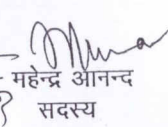 महेन्द्र आनन्द
सदस्य